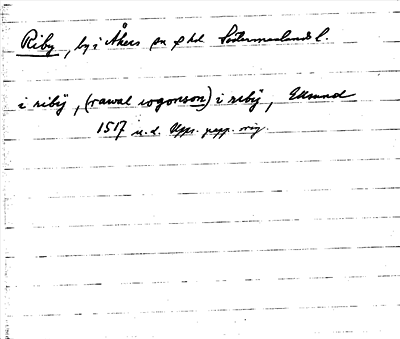 Riby, by i Åkers sn o hd Södermanlands l.
i ribÿ, (rawal iogonson) i ribÿ, Edmund
1517 u.d. Upps. papp. orig.